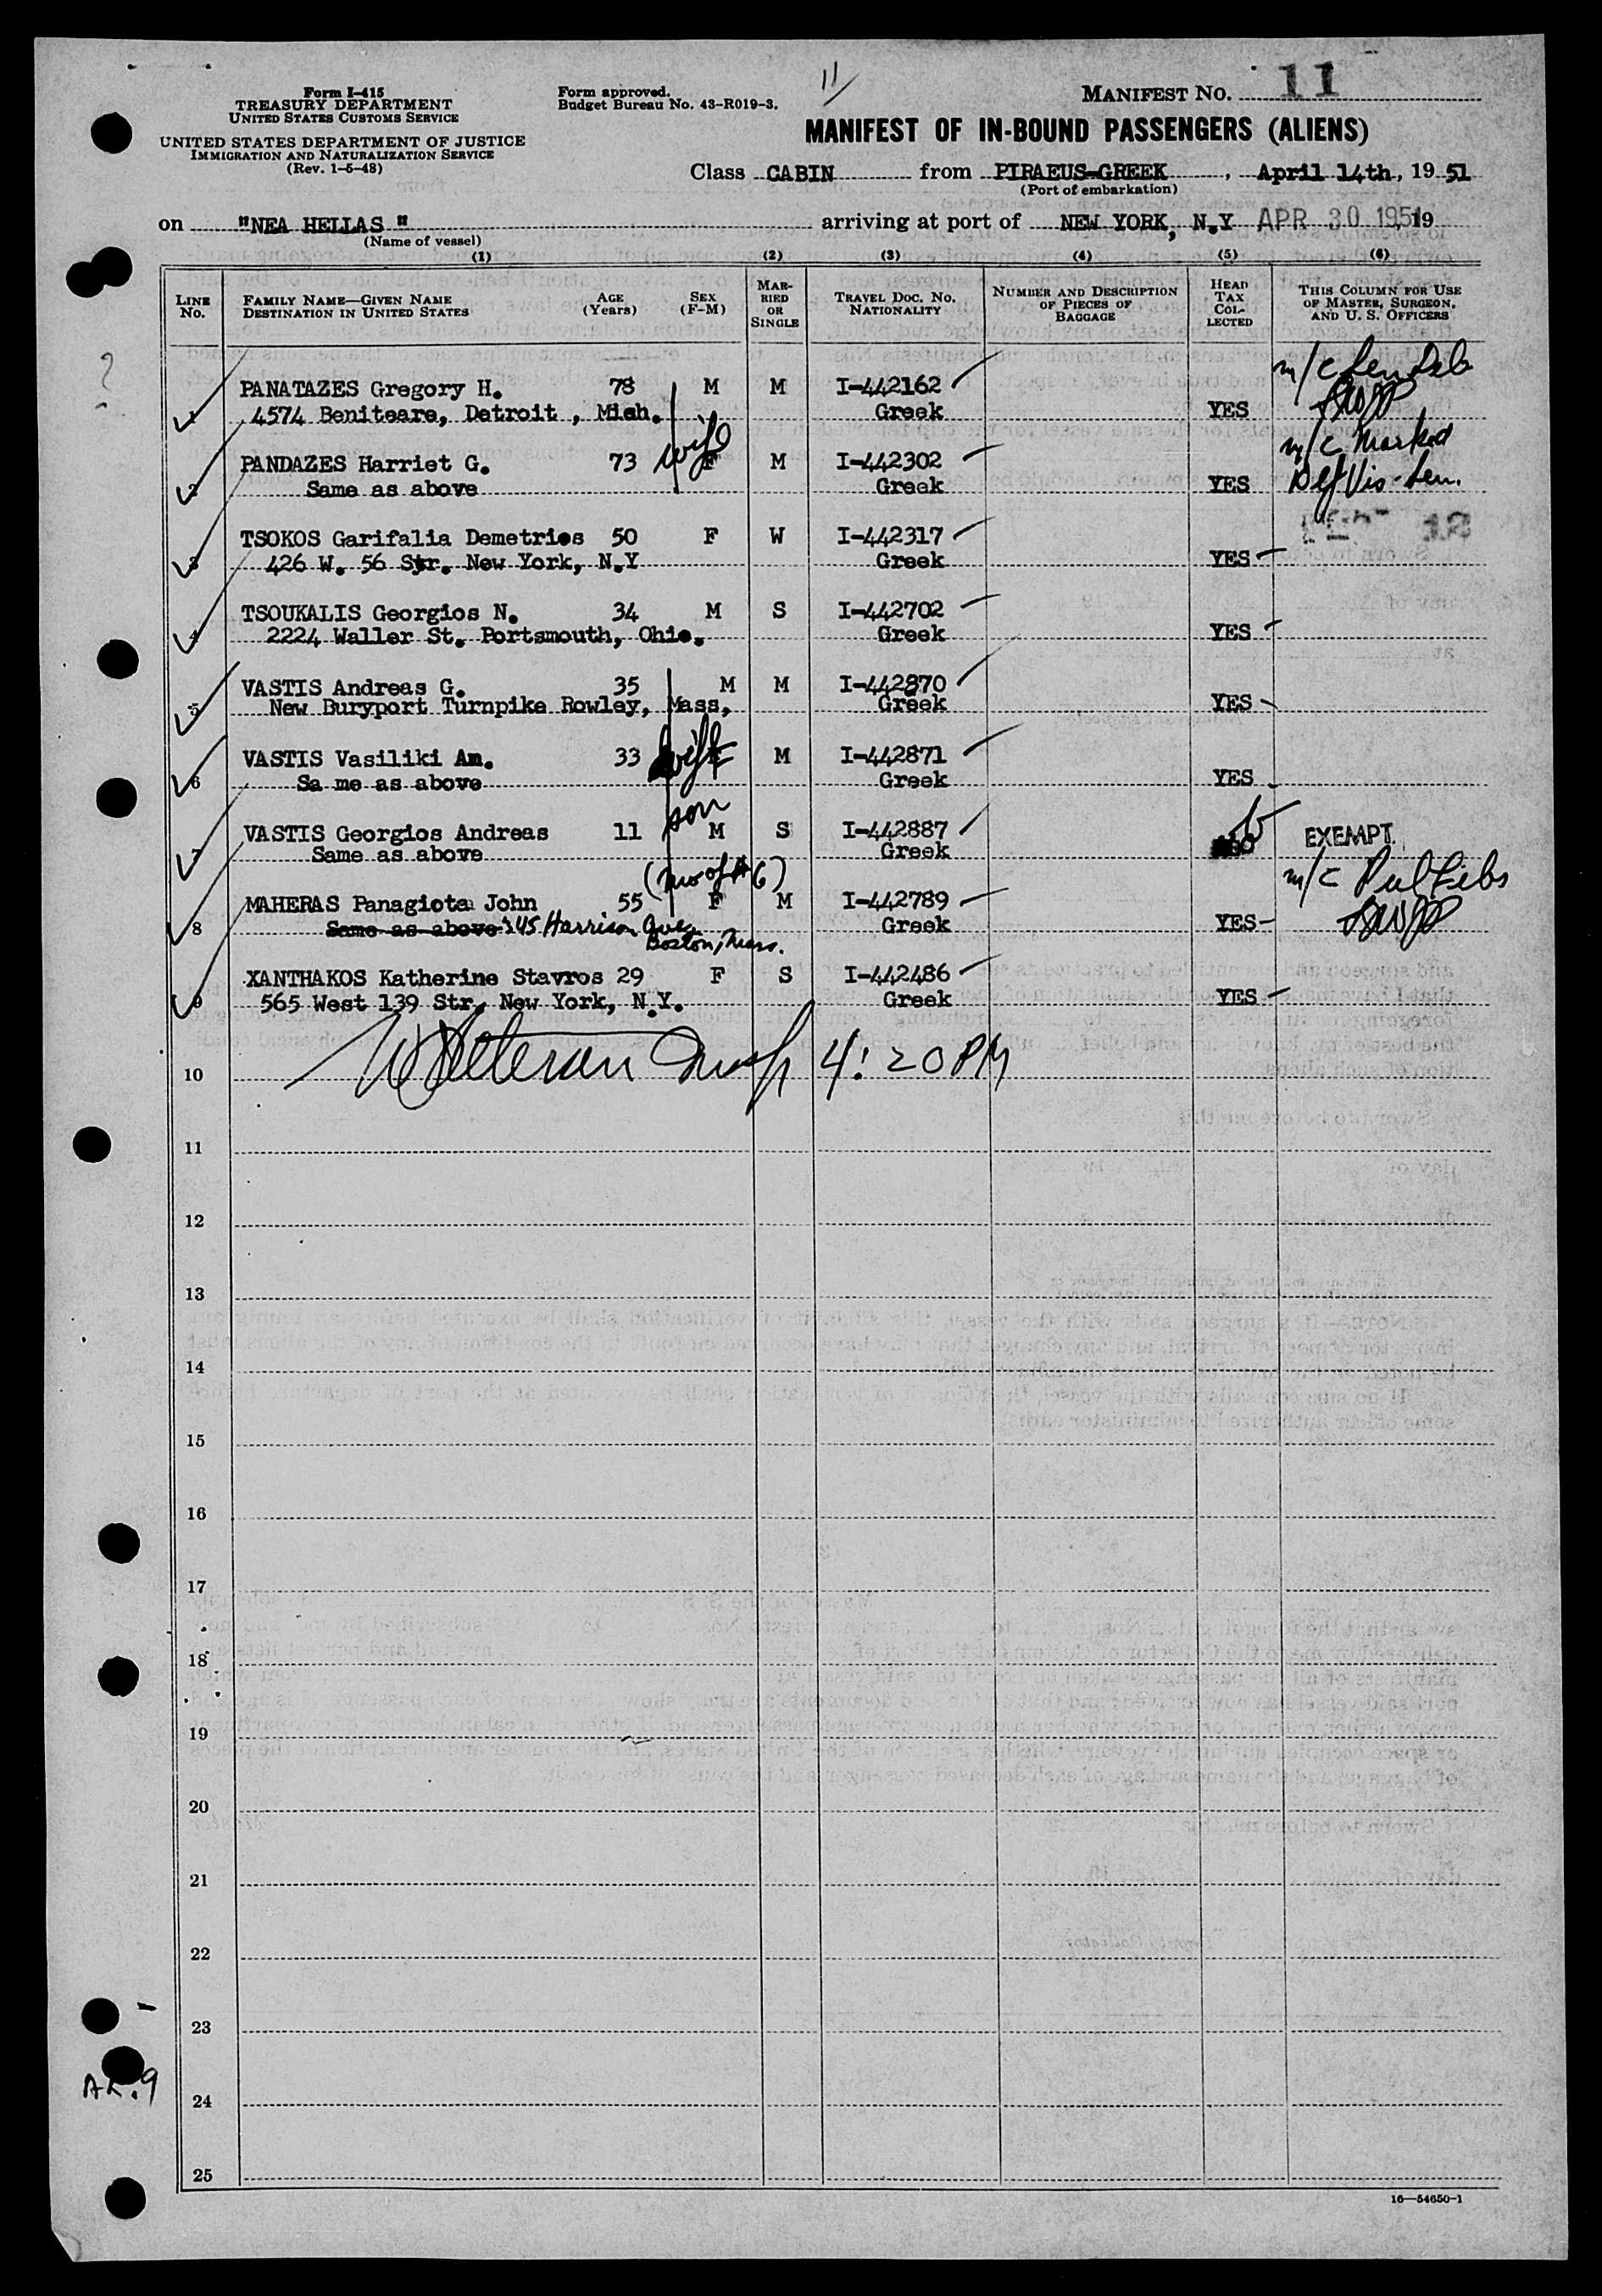 Form I-415
TREASURY DEPARTMENT
UNITED STATES CUSTOMS SERVICE
UNITED STATES DEPARTMENT OF JUSTICE
IMMIGRATION AND NATURALIZATION SERVICE
(Rev. 1-5-48)
Form approved.
Budget Bureau No. 43-R019-3.
11
MANIFEST NO. 11
MANIFEST OF IN-BOUND PASSENGERS (ALIENS)
Class CABIN from PIRAEUS-GREEK, April 14th, 19 51
(Port of embarkation)
on "NEA HELLAS" arriving at port of NEW YORK, N.Y APR 30 1951 19
(Name of vessel)
(1) (2) (3) (4) (5) (6)
LINE No. FAMILY NAME—GIVEN NAME DESTINATION IN UNITED STATES AGE (Years) SEX (F-M) MARRIED OR SINGLE TRAVEL DOC. NO. NATIONALITY NUMBER AND DESCRIPTION OF PIECES OF BAGGAGE HEAD TAX COLLECTED THIS COLUMN FOR USE OF MASTER, SURGEON, AND U. S. OFFICERS
PANATAZES Gregory H. 78 M M I-442162 m/c
1 4574 Beniteare, Detroit , Mich. Greek YES
PANDAZES Harriet G. 73 wife F M I-442302 m/c Marked
2 Same as above Greek YES Def Vis-Sen.
TSOKOS Garifalia Demetrios 50 F W I-442317
3 426 W. 56 Str. New York, N.Y Greek YES
TSOUKALIS Georgios N. 34 M S I-442702
4 2224 Waller St. Portsmouth, Ohio. Greek YES
VASTIS Andreas G. 35 M M I-442870
5 New Buryport Turnpike Rowley, Mass, Greek YES
VASTIS Vasiliki An. 33 wife F M I-442871
6 Sa me as above Greek YES
son
VASTIS Georgios Andreas 11 M S I-442887 EXEMPT
7 Same as above Greek
(mo of #6) m/c
MAHERAS Panagiota John 55 F M I-442789
8 Same as above 345 Harrison Ave. Boston, Mass. Greek YES
XANTHAKOS Katherine Stavros 29 F S I-442486
9 565 West 139 Str, New York, N.Y. Greek YES
10 Insp 4:20 PM
11
12
13
14
15
16
17
18
19
20
21
22
23
24
25
16—54650-1